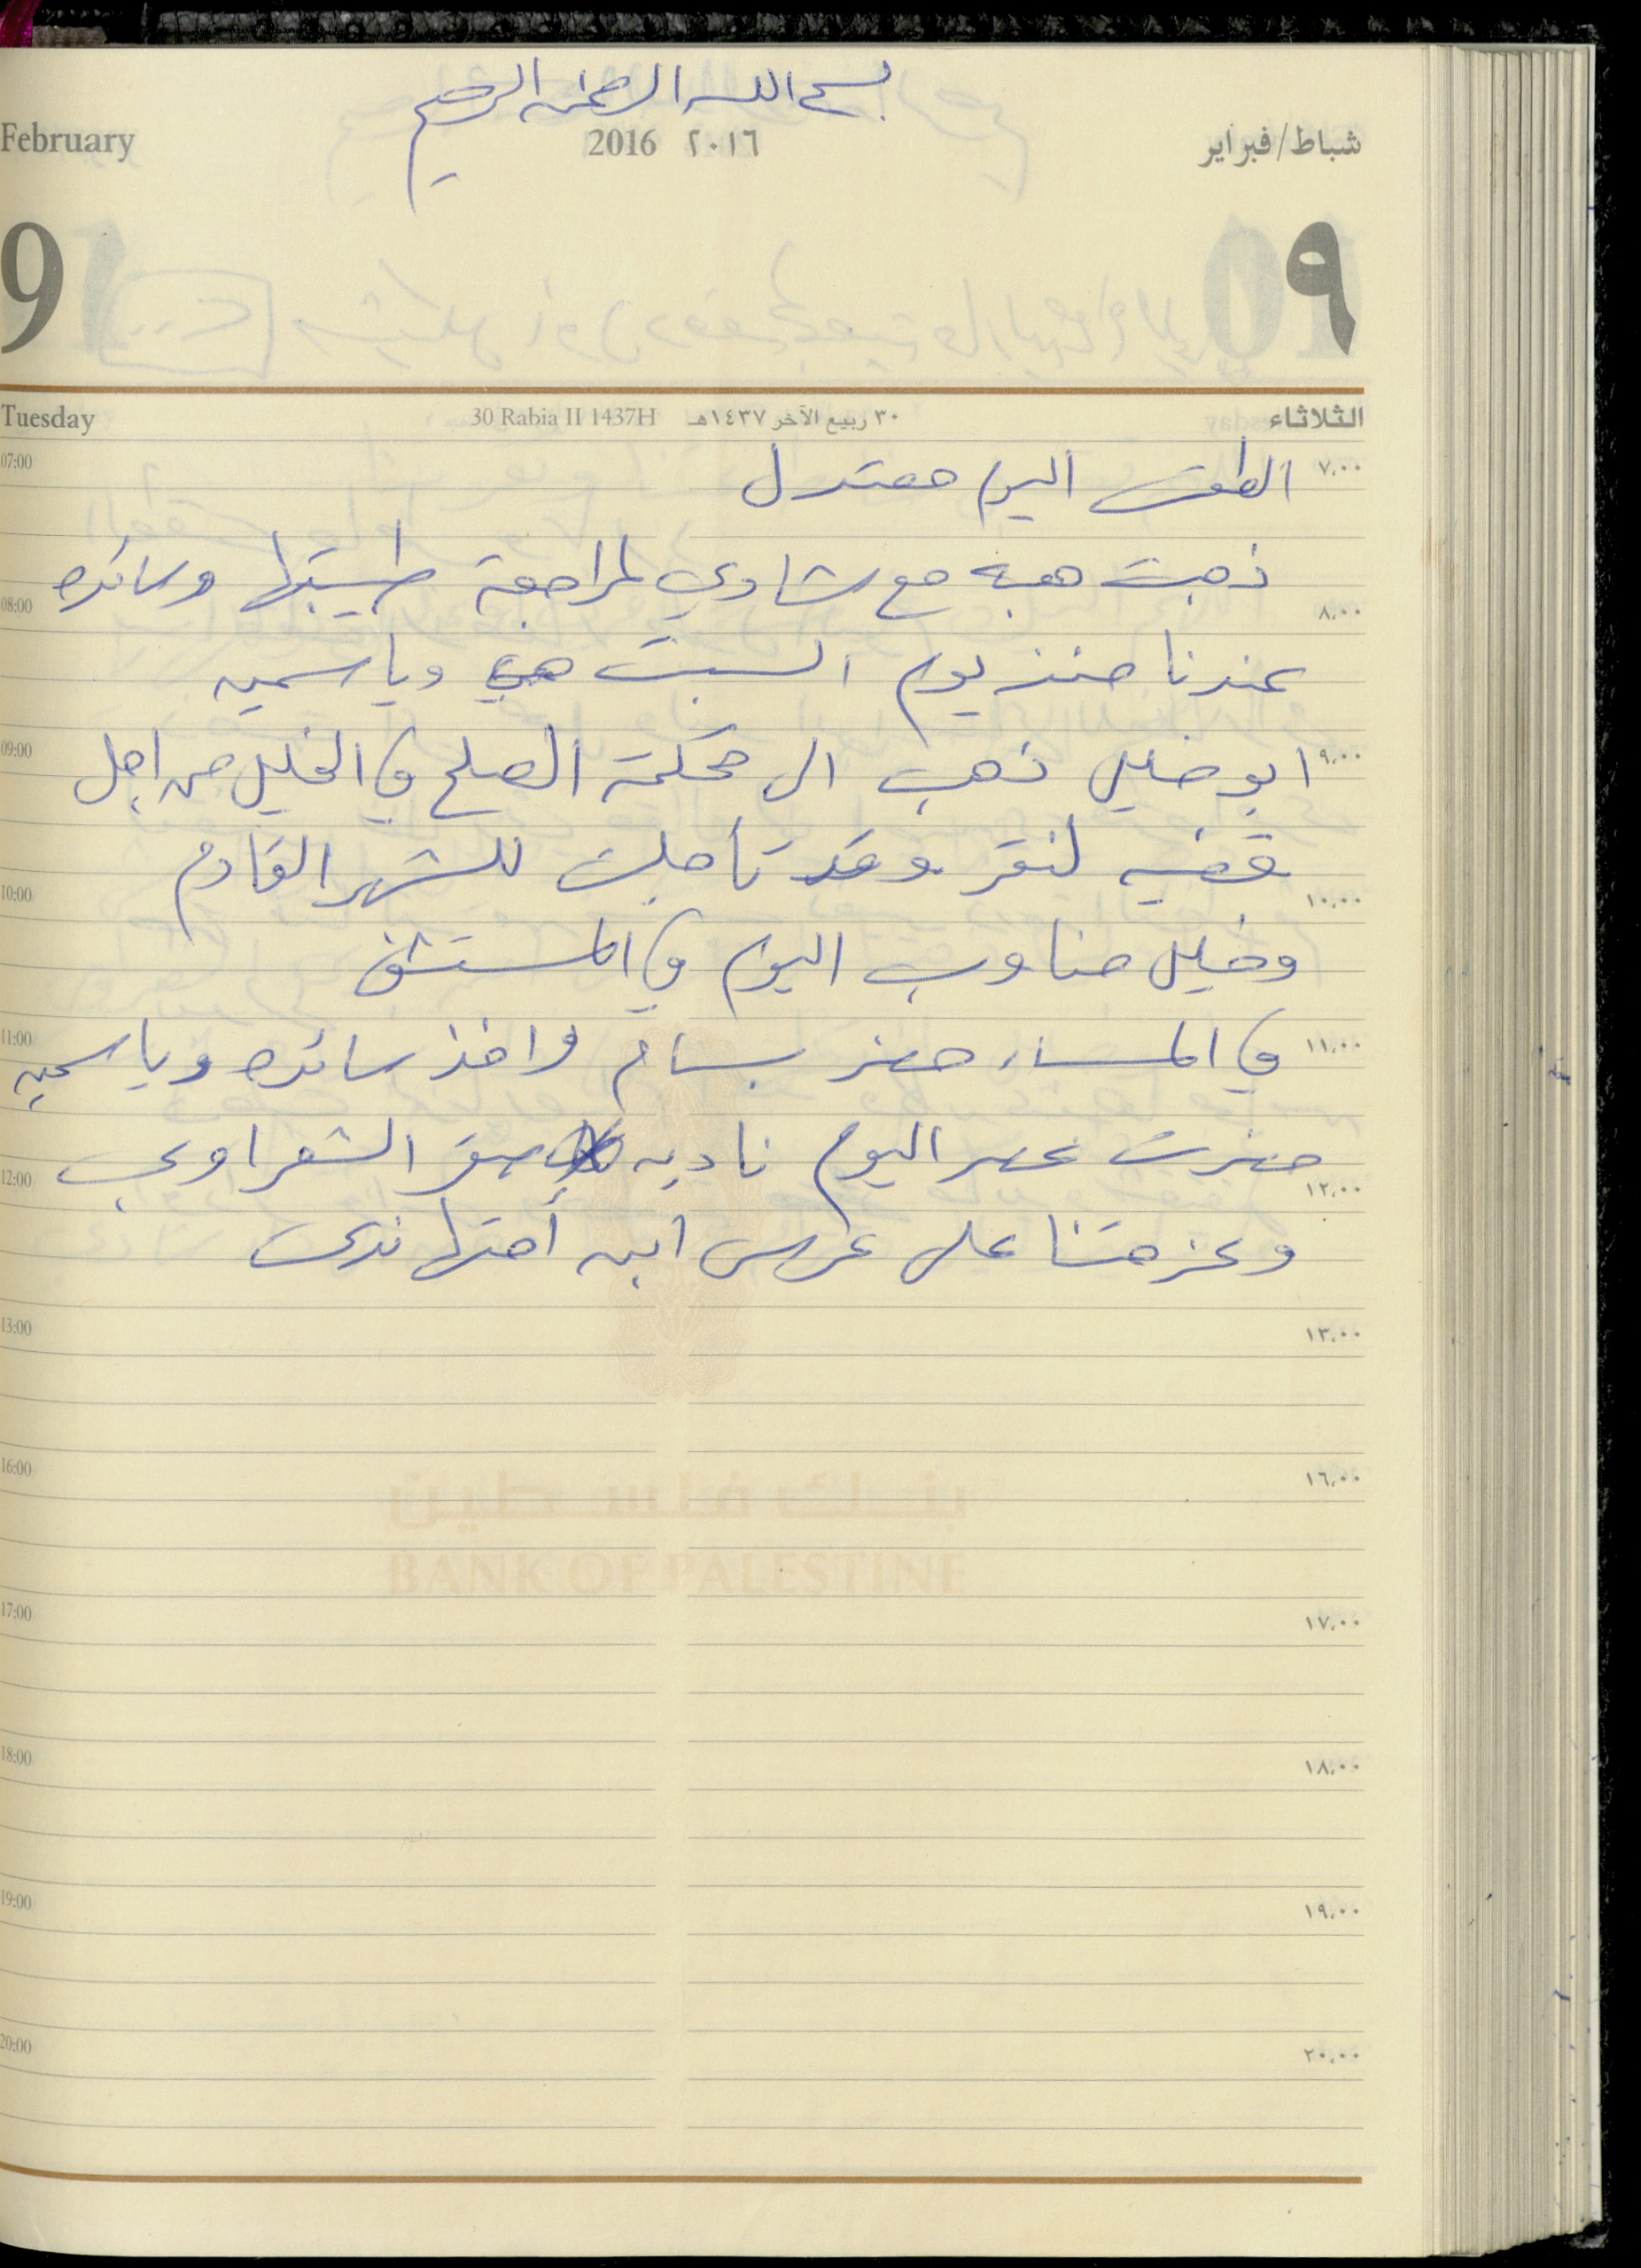 بسم الله الرحمن الرحيم
February 2016 ٢٠١٦ شباط/فبراير
9 ٩
Tuesday 30 Rabia II 1437H ٣٠ ربيع الآخر ١٤٣٧هـ الثلاثاء
07:00 الطقس اليوم معتدل ٧,٠٠
ذهبت هبه مع شادي لمراجعة طبيبتها وسائده
08:00 ٨,٠٠
عندنا منذ يوم السبت هي وياسمين
09:00 ابو خليل ذهب الى محكمة الصلح في الخليل من اجل ٩,٠٠
قضيه لنقر وقد تاجلت للشهر القادم
10:00 ١٠,٠٠
وخليل مناوب اليوم في المستشفى
11:00 في المساء حضر بسام واخذ سائده وياسمين ١١,٠٠
حضرت عصر اليوم ناديه الشعراوي
12:00 ١٢,٠٠
وعزمتنا على عرس ابن أختها ندى
13:00 ١٣,٠٠
16:00 ١٦,٠٠
بنك فلسطين
BANK OF PALESTINE
17:00 ١٧,٠٠
18:00 ١٨,٠٠
19:00 ١٩,٠٠
20:00 ٢٠,٠٠